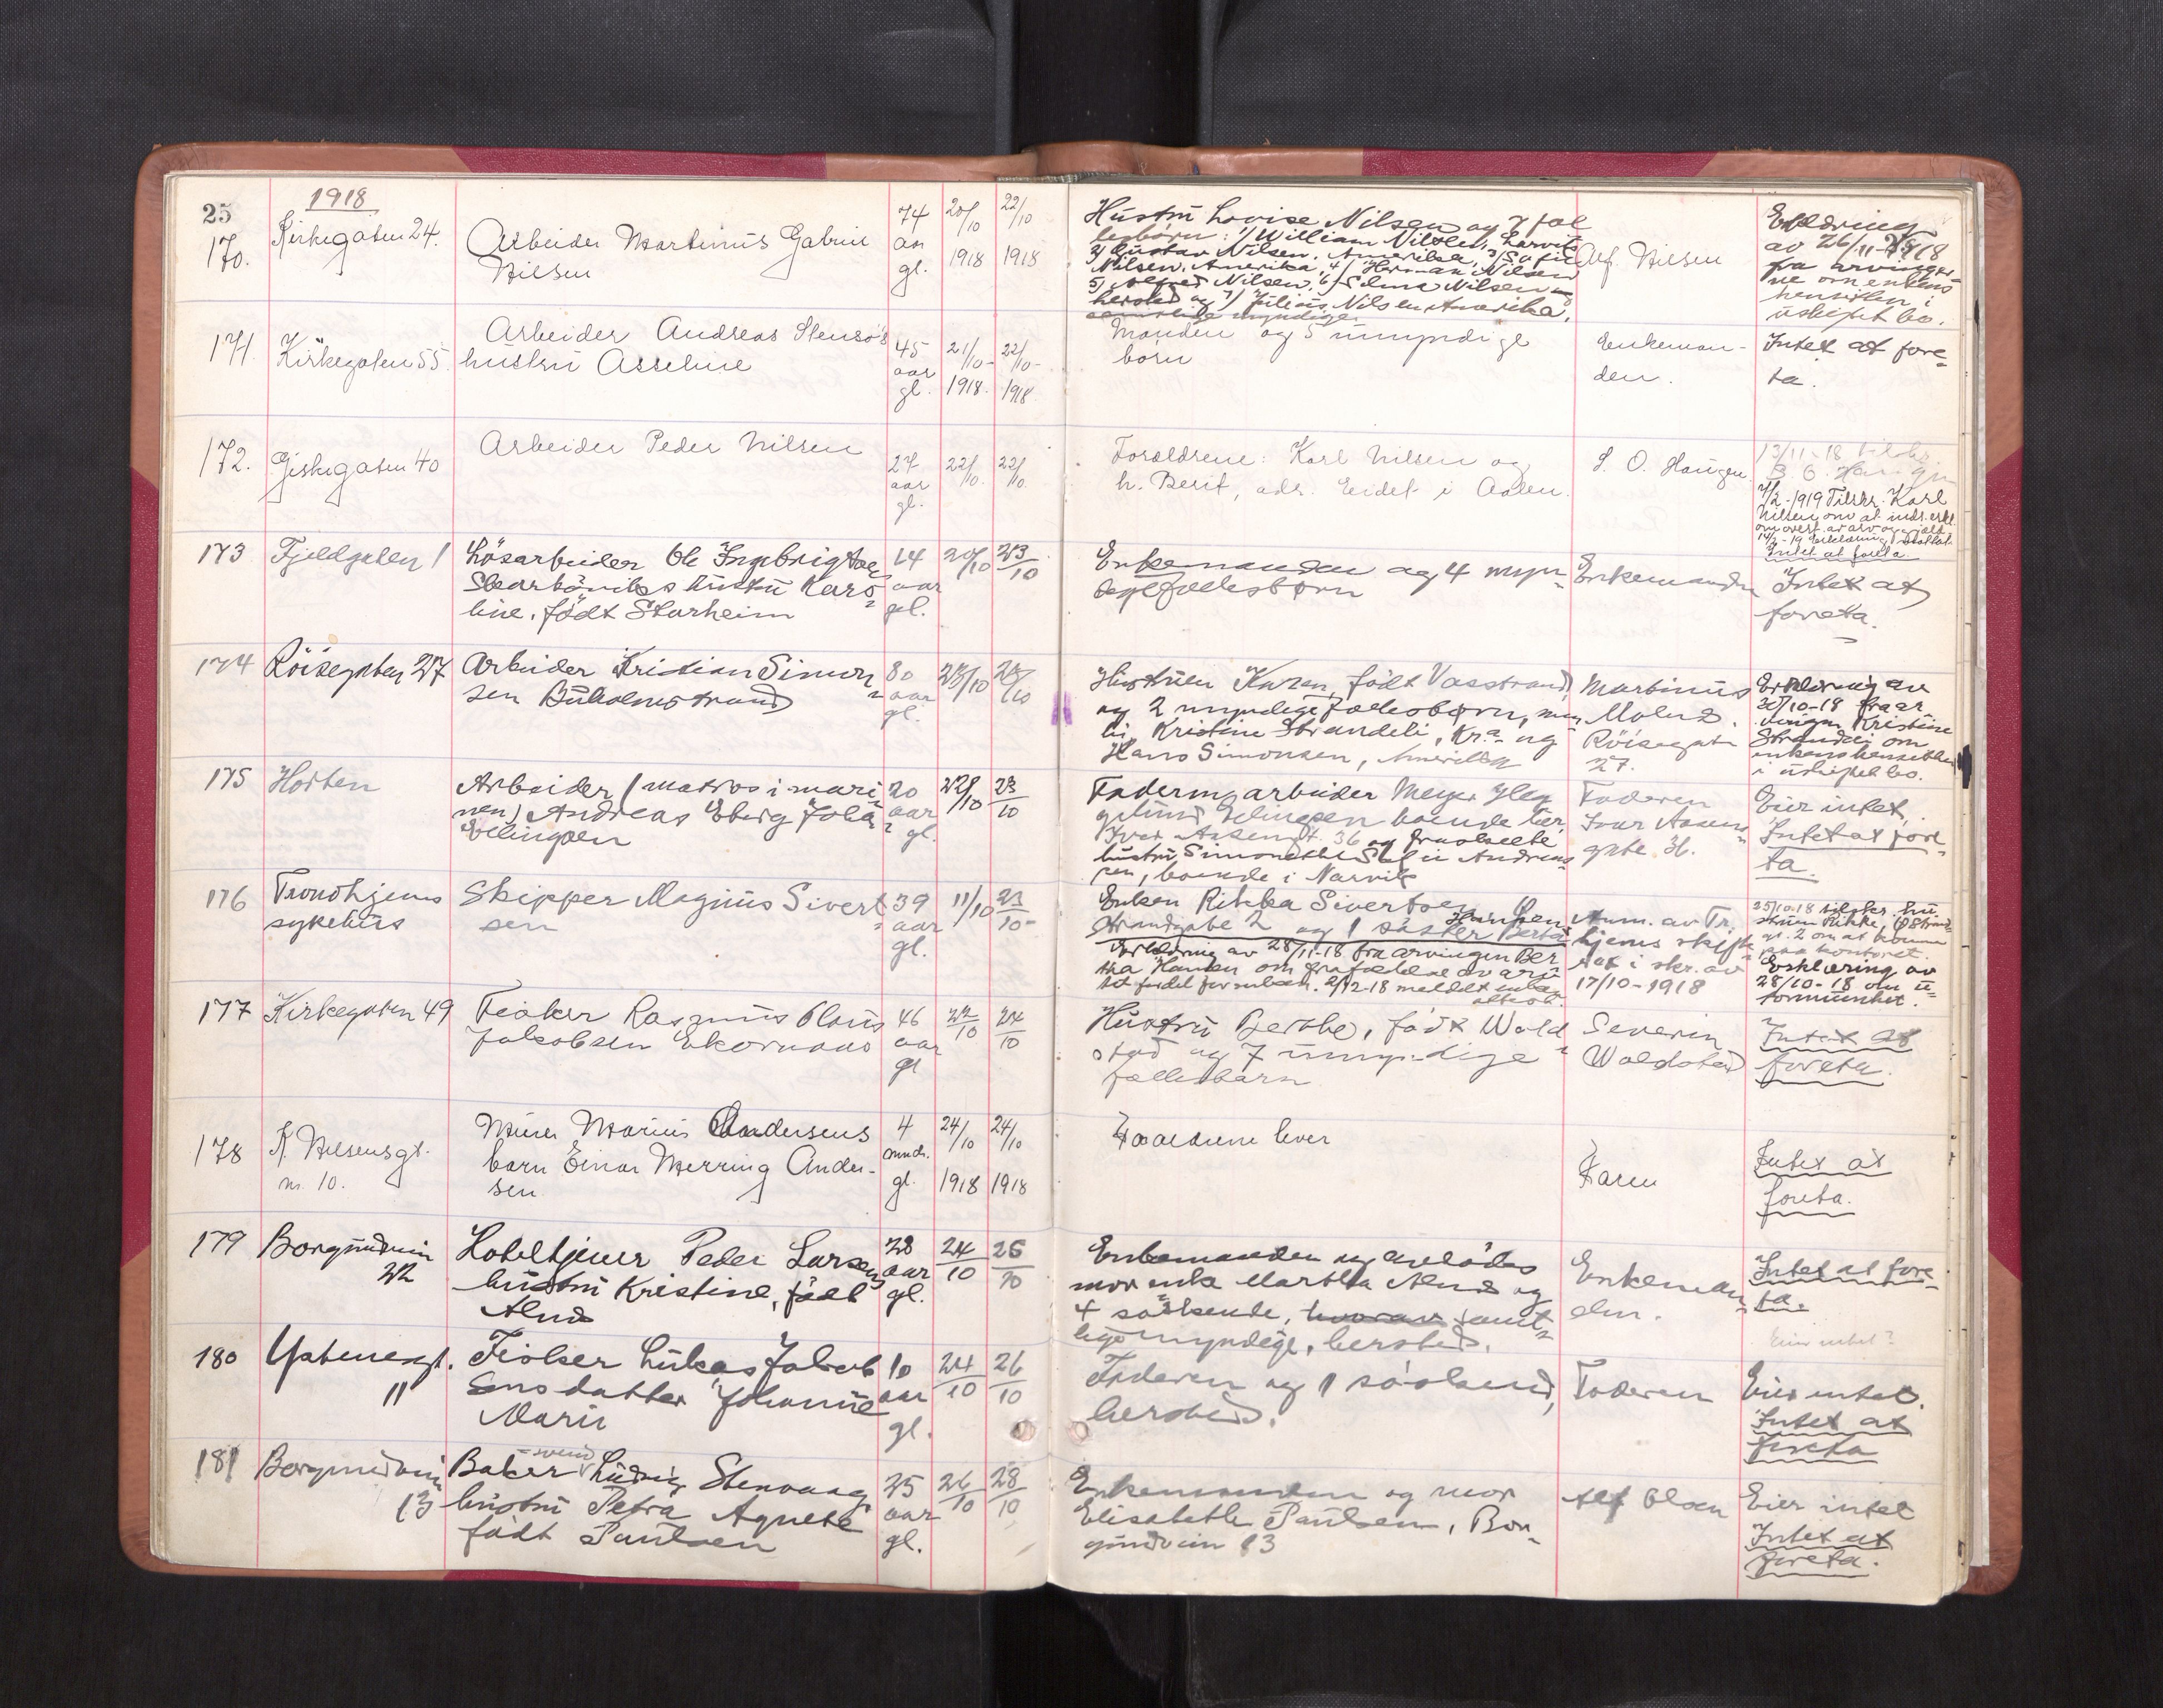 25
1918
170. Kirkegaten 24. Arbeider Martinus Gabriel
Nilsen
74
aar
gl.
20/10
1918
22/10
1918
Hustru Lovise Nilsen og 7 fæl
lesbørn: 1/ William Nilsen, Larvik
2/ Gustav Nilsen, Amerika, 3/ Sofie
Nilsen, Amerika, 4/ Herman Nilsen
5/ Alfred Nilsen, 6/ Selma Nilsen
hersted og 7/ Julius Nilsen Amerika,
samtlige myndige.
Alf. Nilsen
Erklæring
av 26/11-1918
fra arvinger
ne om enkens
hensitten i
uskiftet bo.
171. Kirkegaten 55. Arbeider Andreas Stensø's
hustru Asseline
45
aar
gl.
21/10-
1918.
22/10-
1918
Manden og 5 umyndige
børn
Enkeman-
den.
Intet at fore-
ta.
172. Giskegaten 40 Arbeider Peder Nilsen
27
aar
gl.
22/10.
22/10
Forældrene: Karl Nilsen og
h. Berit, adr. Eidet i Aalen.
S. O. Haugen.
13/11-18 tilskr.
S. O. Haugen
7/2-1919 Tilskr. Karl
Nilsen om at inds. erkl.
om overt. av arv og gjæld.
Intet at foreta.
173 Fjeldgaten 1 Løsarbeider Ole Ingebrigtsen
Skarbøviks hustru Karo-
line, født Starheim
64
aar
gl.
20/10
23/10
Enkemanden og 4 myn-
dige fællesbørn
Enkemanden
Intet at
foreta.
174 Röisegaten 27 Arbeider Kristian Simon-
sen Buholmstrand
80
aar
gl.
23/10
23/10
Hustruen Karen, født Vasstrand,
og 2 myndige fællesbørn, nem
lig Kristine Strandeli, Kr.a og
Hans Simonsen, Amerika
Martinus
Molnes.
Röisegaten
27.
Erklæring av
20/10-18 fra ar
vingen Kristine
Strandli om
enkens hensitten
i uskiftet bo.
175 Horten Arbeider (matros i mari
nen) Andreas Eberg Johan
Ellingsen
20
aar
gl.
22/10
23/10
Faderen, arbeider Meyer
Ellingsen boende her
Ivar Aasensgt. 36 og fraskilte
hustru Simonette Andreas-
sen, boende i Narvik
Faderen
Ivar Aasens-
gate 36.
Eier intet,
Intet at fore-
ta.
176 Trondhjems
sykehus
Skipper Magnus Sivert-
sen
39
aar
gl.
11/10
23/10-
Enken Rikka Sivertsen,
Strandgate 2 og 1 søster Berta Hansen
Erklæring av 28/11-18 fra arvingen Ber
tha Hansen om frafaldelse av arv
til fordel for enken. 2/12-18 meldt enken
Anm. av Tr.
hjems skifte-
ret i skr. av
17/10-1918
25/10-18 tilskr. hu
gt. 2 om at komme
paa kontoret.
Erklæring av
28/10-18 om u-
formuenhet.
177 Kirkegaten 49 Fisker Rasmus Olaus
Jakobsen Ekornaas
46
aar
gl
22/10
24/10
Hustru Berthe, født Wald-
stad og 7 umyndige
fællesbarn
Severin
Waldstad
Intet at
foreta.
178 K Nilsensgt.
nr. 10.
Murer Marius Andersens
barn Einar Merring Ander-
sen
4
mndr.
gl.
24/10
1918
24/10
1918
Forældrene lever
Faren
Intet at
foreta.
179 Borgundvein
22
Hoteltjener Peder Larsens
hustru Kristine, født
Alnes
28
aar
gl.
24/10
25/10
Enkemanden og avdødes
mor enke Martha Alnes og
4 søskende, hvorav samt-
lige myndige, hersted.
Enkeman-
den.
Intet at fore-
ta.
Eier intet?
180 Ystenesgt.
11
Fisker Lukas Jakob
sens datter Johanne
Marie
10
aar
gl.
24/10
26/10
Faderen og 1 søskend,
hersted.
Faderen
Eier intet.
Intet at
foreta
181 Borgundvein
13
Bakersvend Ludvig Stenvaag
hustru Petra Agnete
født Paulsen
25
aar
gl.
26/10
28/10
Enkemanden og mor
Elisabeth Paulsen, Bor-
gundvein 13
Alf Olsen
Eier intet
Intet at
foreta.